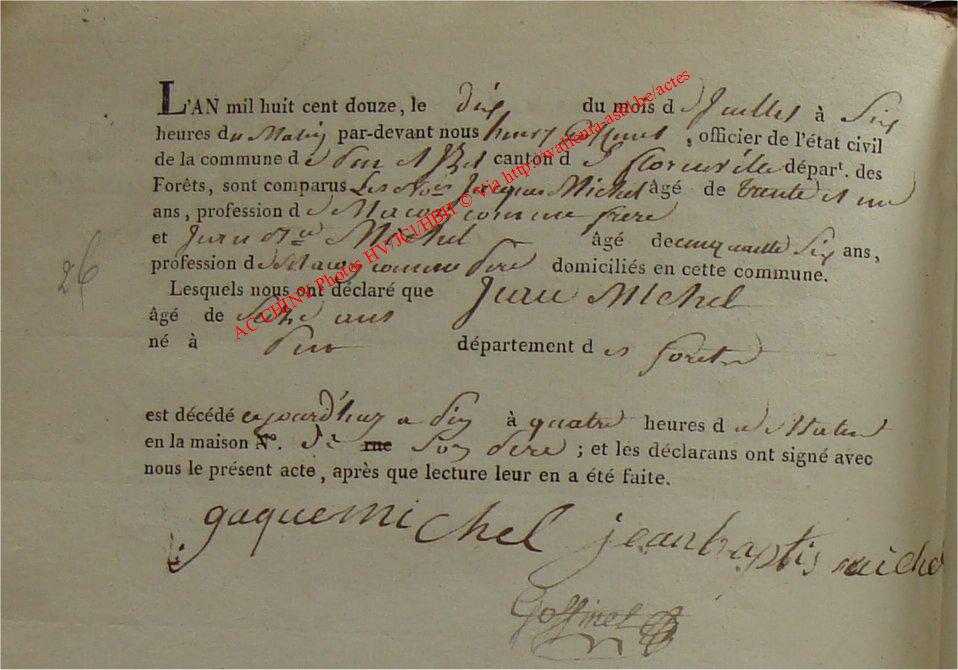 L'AN mil huit cent douze, le dix du mois de Juillet à Six
heures du Matin par-devant nous henry Goffinet, officier de l'état civil
de la commune de canton de florenville départ. des
Forêts, sont comparus Les Jacque Michel âgé de trente et un
ans, profession de Macon comme frere
et Jean Michel âgé de cinquante Six ans,
profession de Macon comme Pere domiciliés en cette commune.
Lesquels nous ont déclaré que Jean Michel
âgé de Seize ans
né à département des foret
26
est décédé à quatre heures de Matin
en la maison N°. de rue Son Pere ; et les déclarans ont signé avec
nous le présent acte, après que lecture leur en a été faite.
gaquemichel jeanbaptis michel
Goffinet
AC CHINY Photos HV/JCl/HBH © via http://wallonia-asbl.be/actes